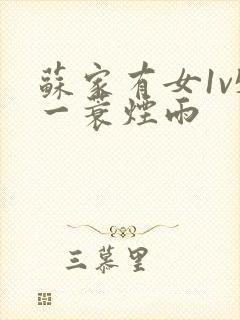 蘇家有女1v
一蓑煙雨
三慕里